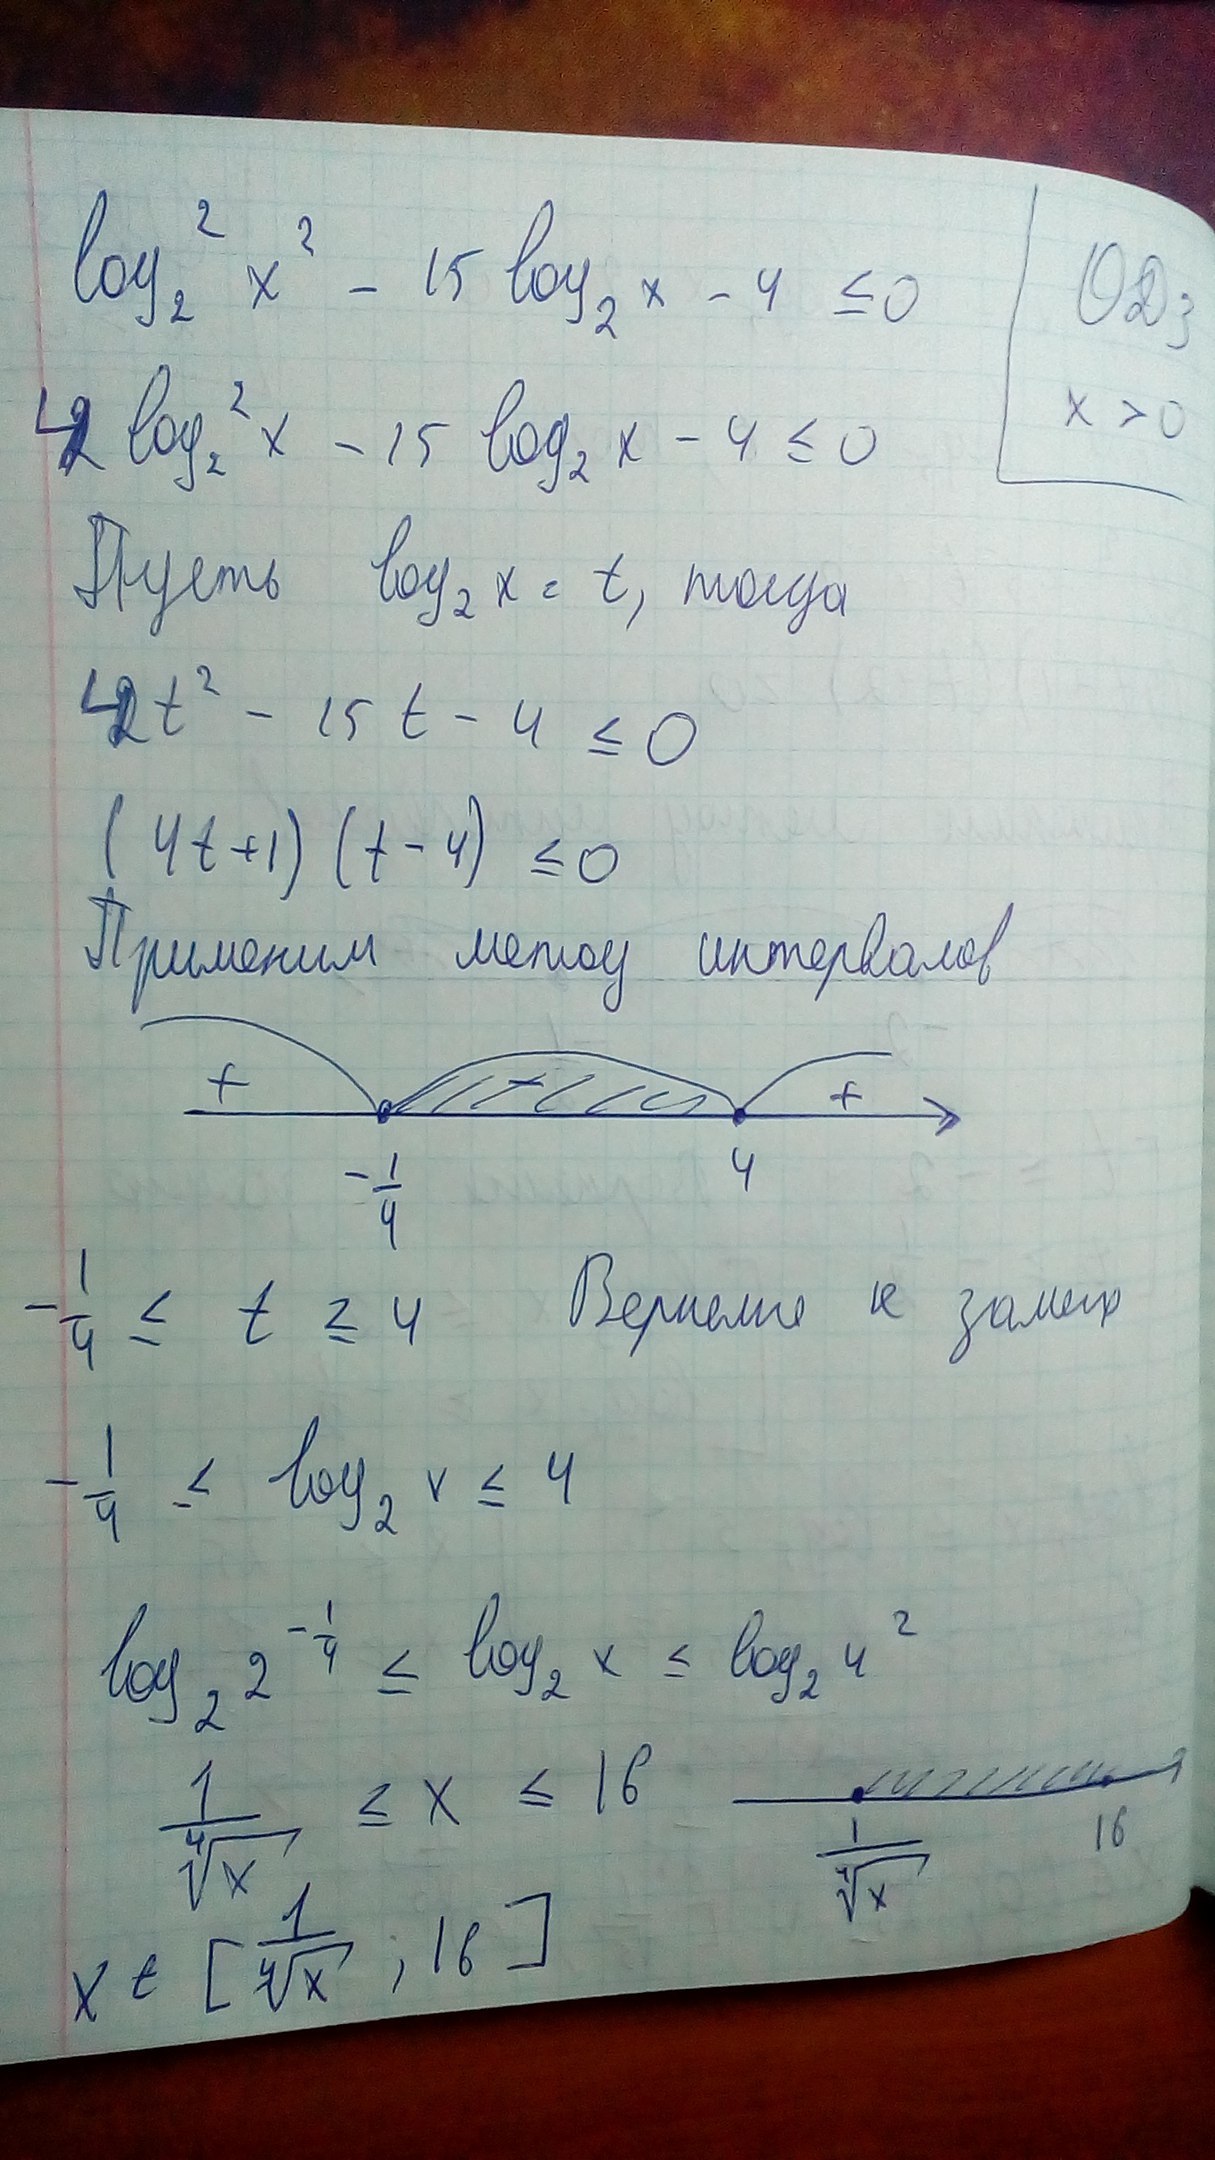 log₂² x² - 15 log₂ x - 4 ≤ 0
ОДЗ
x > 0
4 log₂² x - 15 log₂ x - 4 ≤ 0
Пусть log₂ x = t, тогда
4t² - 15t - 4 ≤ 0
(4t+1)(t-4) ≤ 0
Применим метод интервалов
+ - +
-1/4 4
-1/4 ≤ t ≥ 4 Вернёмся к замен
-1/4 ≤ log₂ x ≤ 4
log₂ 2^(-1/4) ≤ log₂ x ≤ log₂ 4²
1/∜x ≤ x ≤ 16
1/∜x 16
x ∈ [1/∜x ; 16]